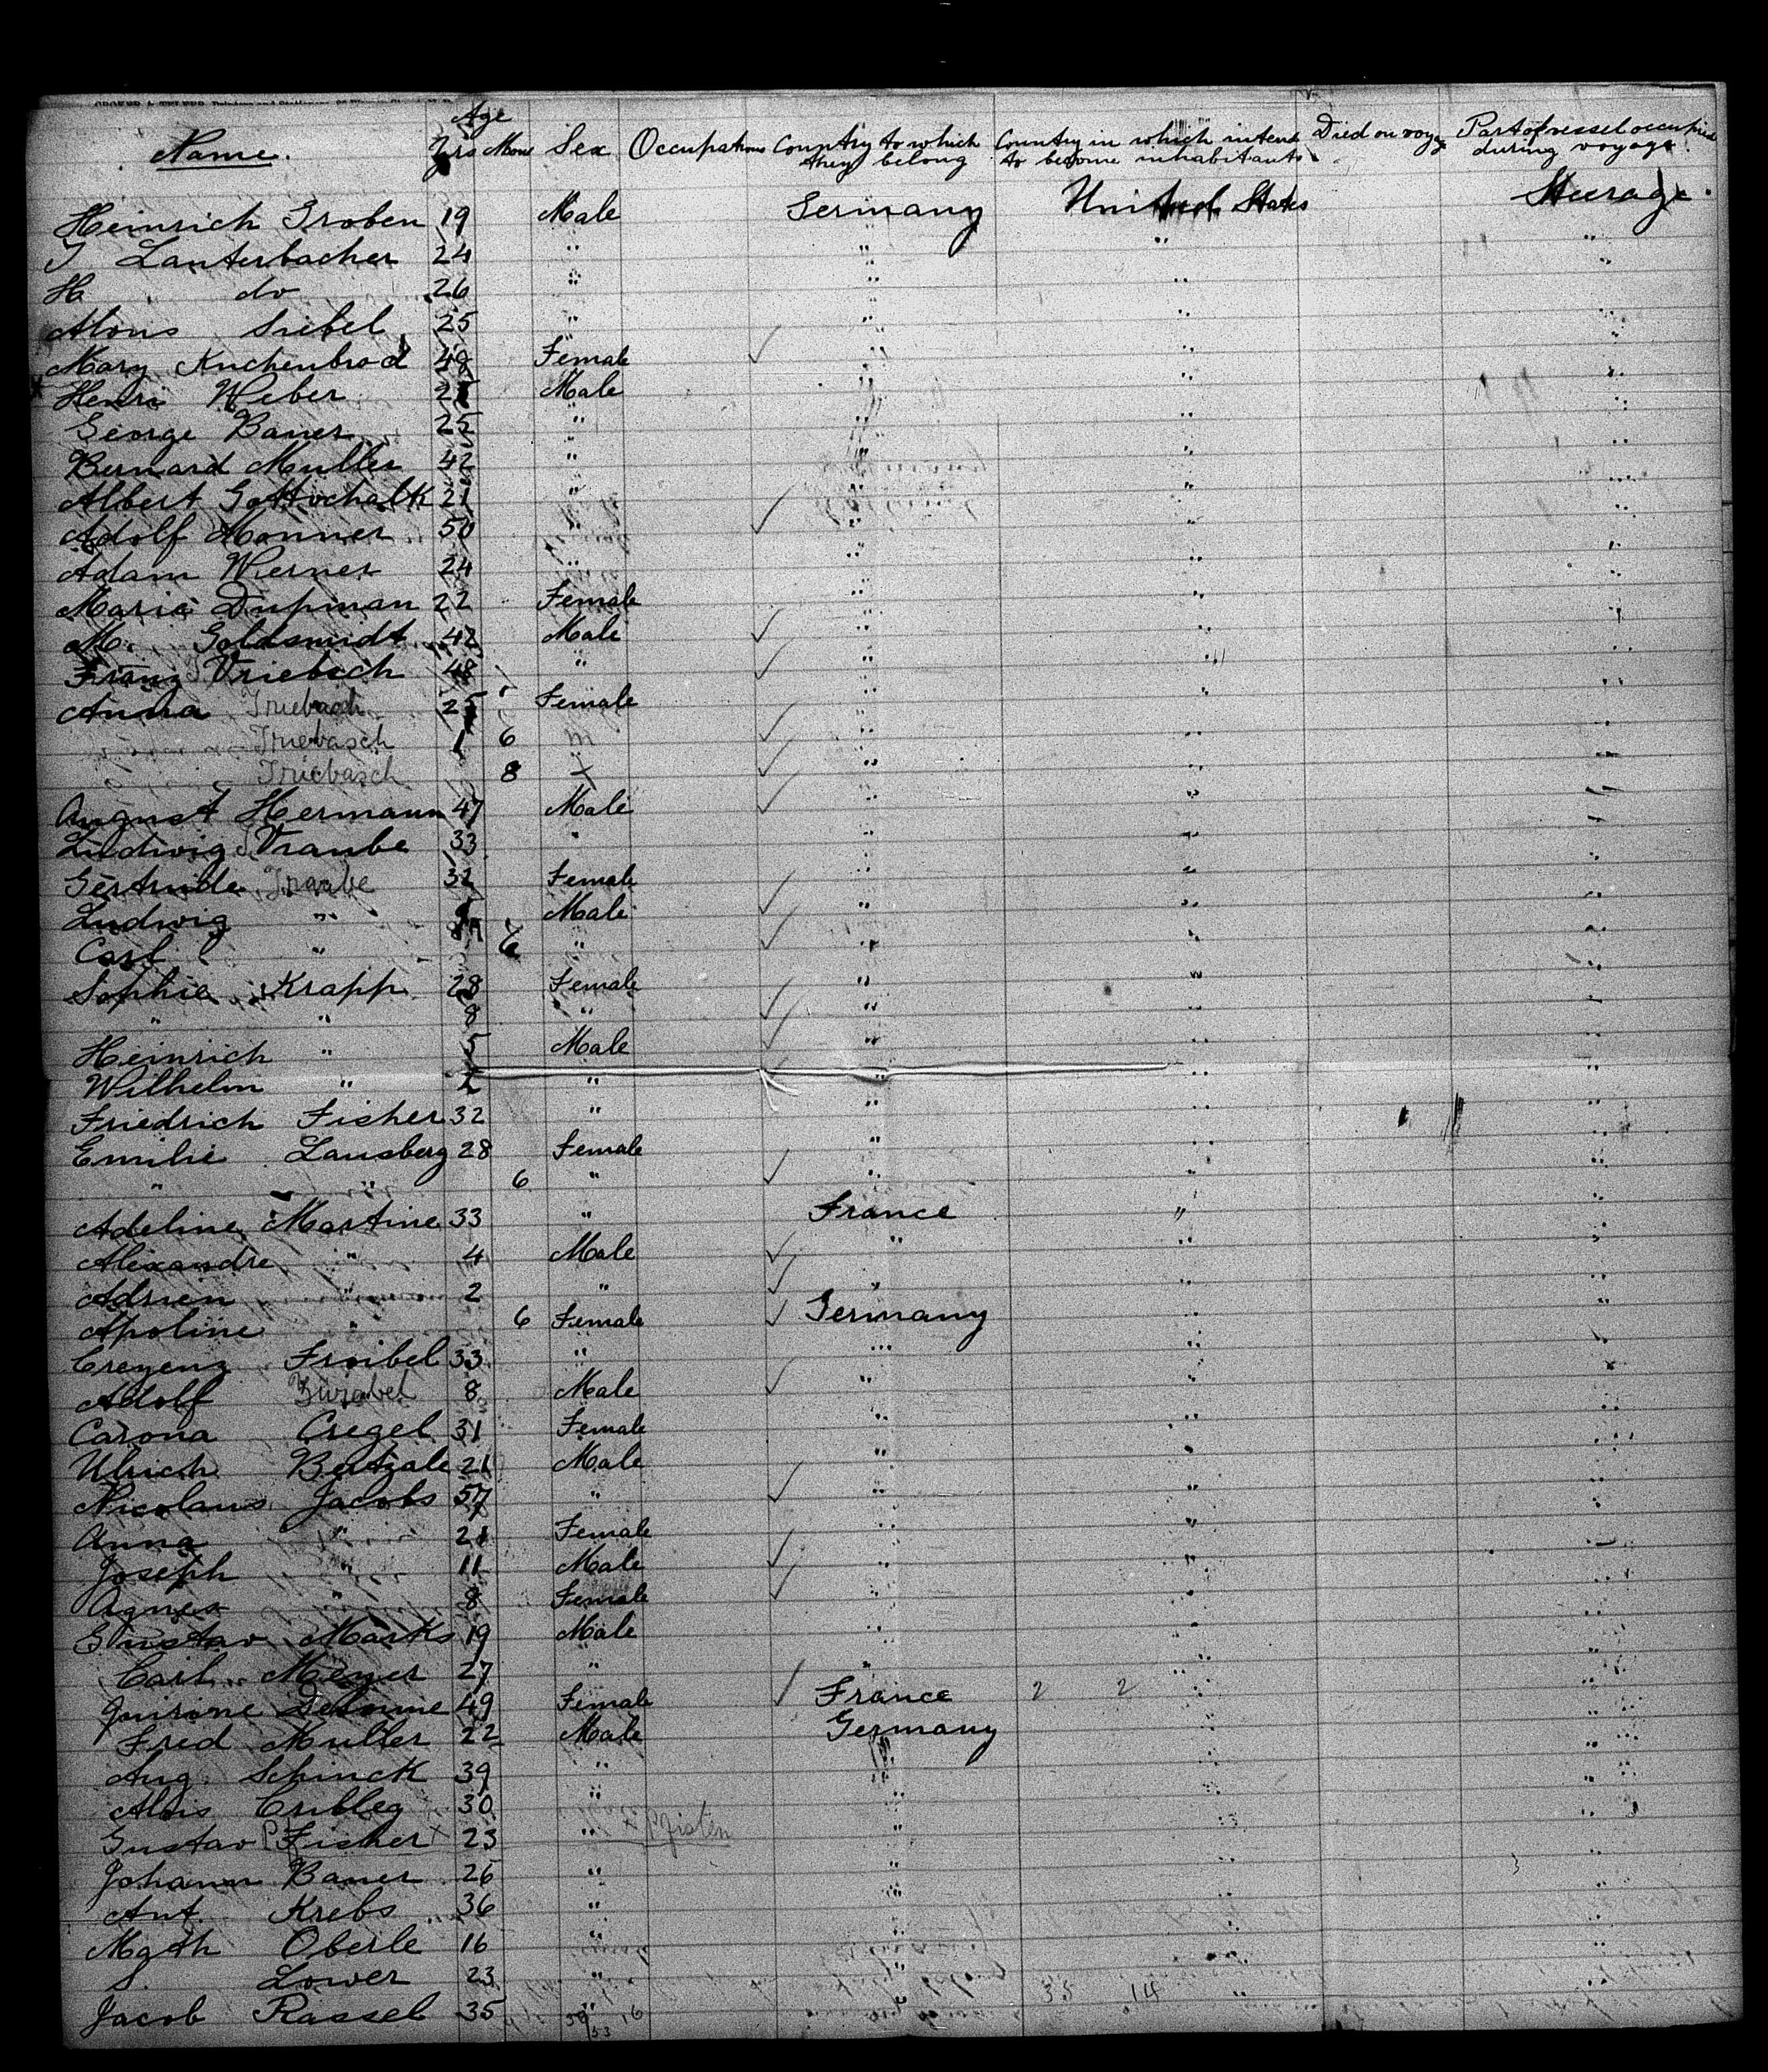 Age
Name. Yrs Mons Sex Occupations Country to which they belong Country in which intend to become inhabitants Died on voyage Part of vessel occupied during voyage
Heinrich Groben 19 Male Germany United States Steerage
J Lauterbacher 24 " " " "
H do 26 " " " "
Alons Siebel 25 " " " "
Mary Kuchenbrod 48 Female " " "
Henri Weber Male " " "
George Bauer 25 " " " "
Bernard Muller 42 " " " "
Albert Gottschalk 21 " " " "
Adolf Monner 50 " " " "
Adam Werner 24 " " " "
Maria Dupman 22 Female " " "
M. Goldsmidt 42 Male " " "
Franz Vriebsch 48 " " " "
Anna Triebasch 25 Female " " "
Triebasch 1 6 m " " "
Triebasch 8 " " "
August Hermann 47 Male " " "
Ludwig Traube 33 " " " "
Gertrude Traube 32 Female " " "
Ludwig " Male " " "
Carl " 6 " " " "
Sophie Krapp 28 Female " " "
" " 8 " " " "
Heinrich " 5 Male " " "
Wilhelm " 2 " " " "
Friedrich Fisher 32 " " " "
Emilie Lansberg 28 Female " " "
" " 6 " " " "
Adeline Martine 33 " France " "
Alexandre " 4 Male " " "
Adrien " 2 " " " "
Apoline " 6 Female Germany " "
Creyenz Froibel 33 " " " "
Adolf 8 Male " " "
Carona Cregel 31 Female " " "
Ulrich Bertzale 21 Male " " "
Nicolaus Jacobs 57 " " " "
Anna " 21 Female " " "
Joseph " 11 Male " " "
Agnes " 8 Female " " "
Gustav Marks 19 Male " " "
Carl Meyer 27 " " " "
49 Female France 2 2 " "
Fred Muller 22 Male Germany " "
Aug. Schinck 39 " " " "
Alois Cribleg 30 " " " "
Gustav Fisher x 23 " x Pfisten " " "
Johann Bauer 26 " " " "
Ant. Krebs 36 " " " "
Math Oberle 16 " " " "
S. Lower 23 " " 33 14 " "
Jacob Rassel 35 " "